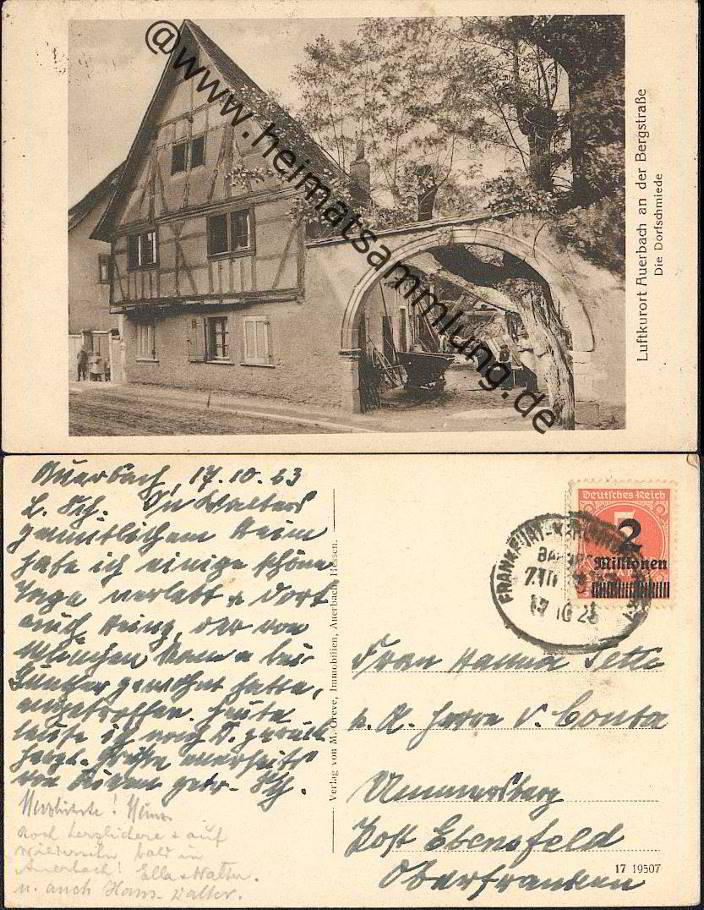 @www.heimatsammlung.de
Luftkurort Auerbach an der Bergstraße
Die Dorfschmiede
Auerbach, 17.10.23
L. Sch. In Walters
gemütlichem Heim
habe ich einige schöne
Tage verlebt & dort
auch Heinz, der von
München kam & bei
gewohnt hatte,
angetroffen. Heute
ich nach D. zurück
herzl. Grüße
von Sch.
Herzlichste!
noch herzlichere & auf
bald in
Auerbach! Ella & Walter.
u. auch Hans-Walter.
Verlag von M. Greve, Immobilien, Auerbach, Hessen.
Deutsches Reich
2
Millionen
FRANKFURT
17 10 23
Frau Hanna
z. A. Herrn v. Conta
Ummersberg
Post Ebensfeld
Oberfranken
17 19507